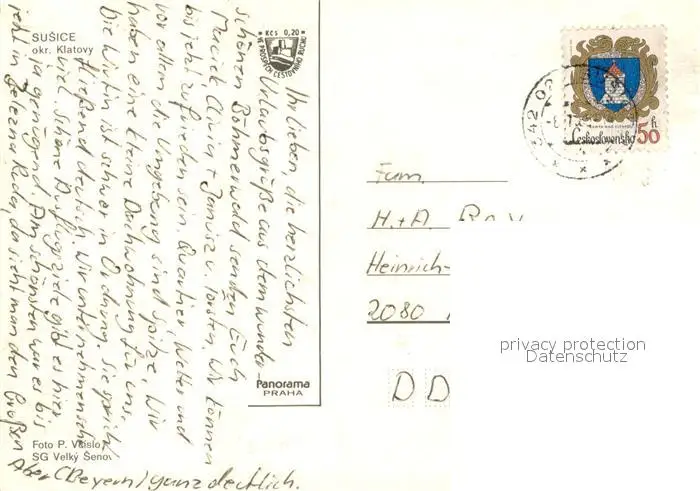 SUŠICE
okr. Klatovy
Kčs 0,20
VE PROSPĚCH CESTOVNÍHO RUCHU
Ihr lieben, die herzlichsten
Urlaubsgrüße aus dem wunder-
schönen Böhmerwald senden Euch
Maciek, Janusz u. Torsten. Wir können
bis jetzt zufrieden sein. Quartier, Wetter und
vor allem die Umgebung sind spitze. Wir
haben eine kleine Dachwohnung für uns.
Die Wirtin ist schwer in Ordnung, sie spricht
fließend deutsch. Wir unternehmen sehr
viel. Schöne Ausflugsziele gibt es hier
ja genügend. Am schönsten war es bis
jetzt in Železná Ruda, da sieht man den Großen
Aber (Bayern) ganz deutlich.
Panorama
PRAHA
Foto P. Vaislo
SG Velký Šenov
342 02
Československo
50 h
Fam.
H. + A.
Heinrich-
2080
DD
privacy protection
Datenschutz